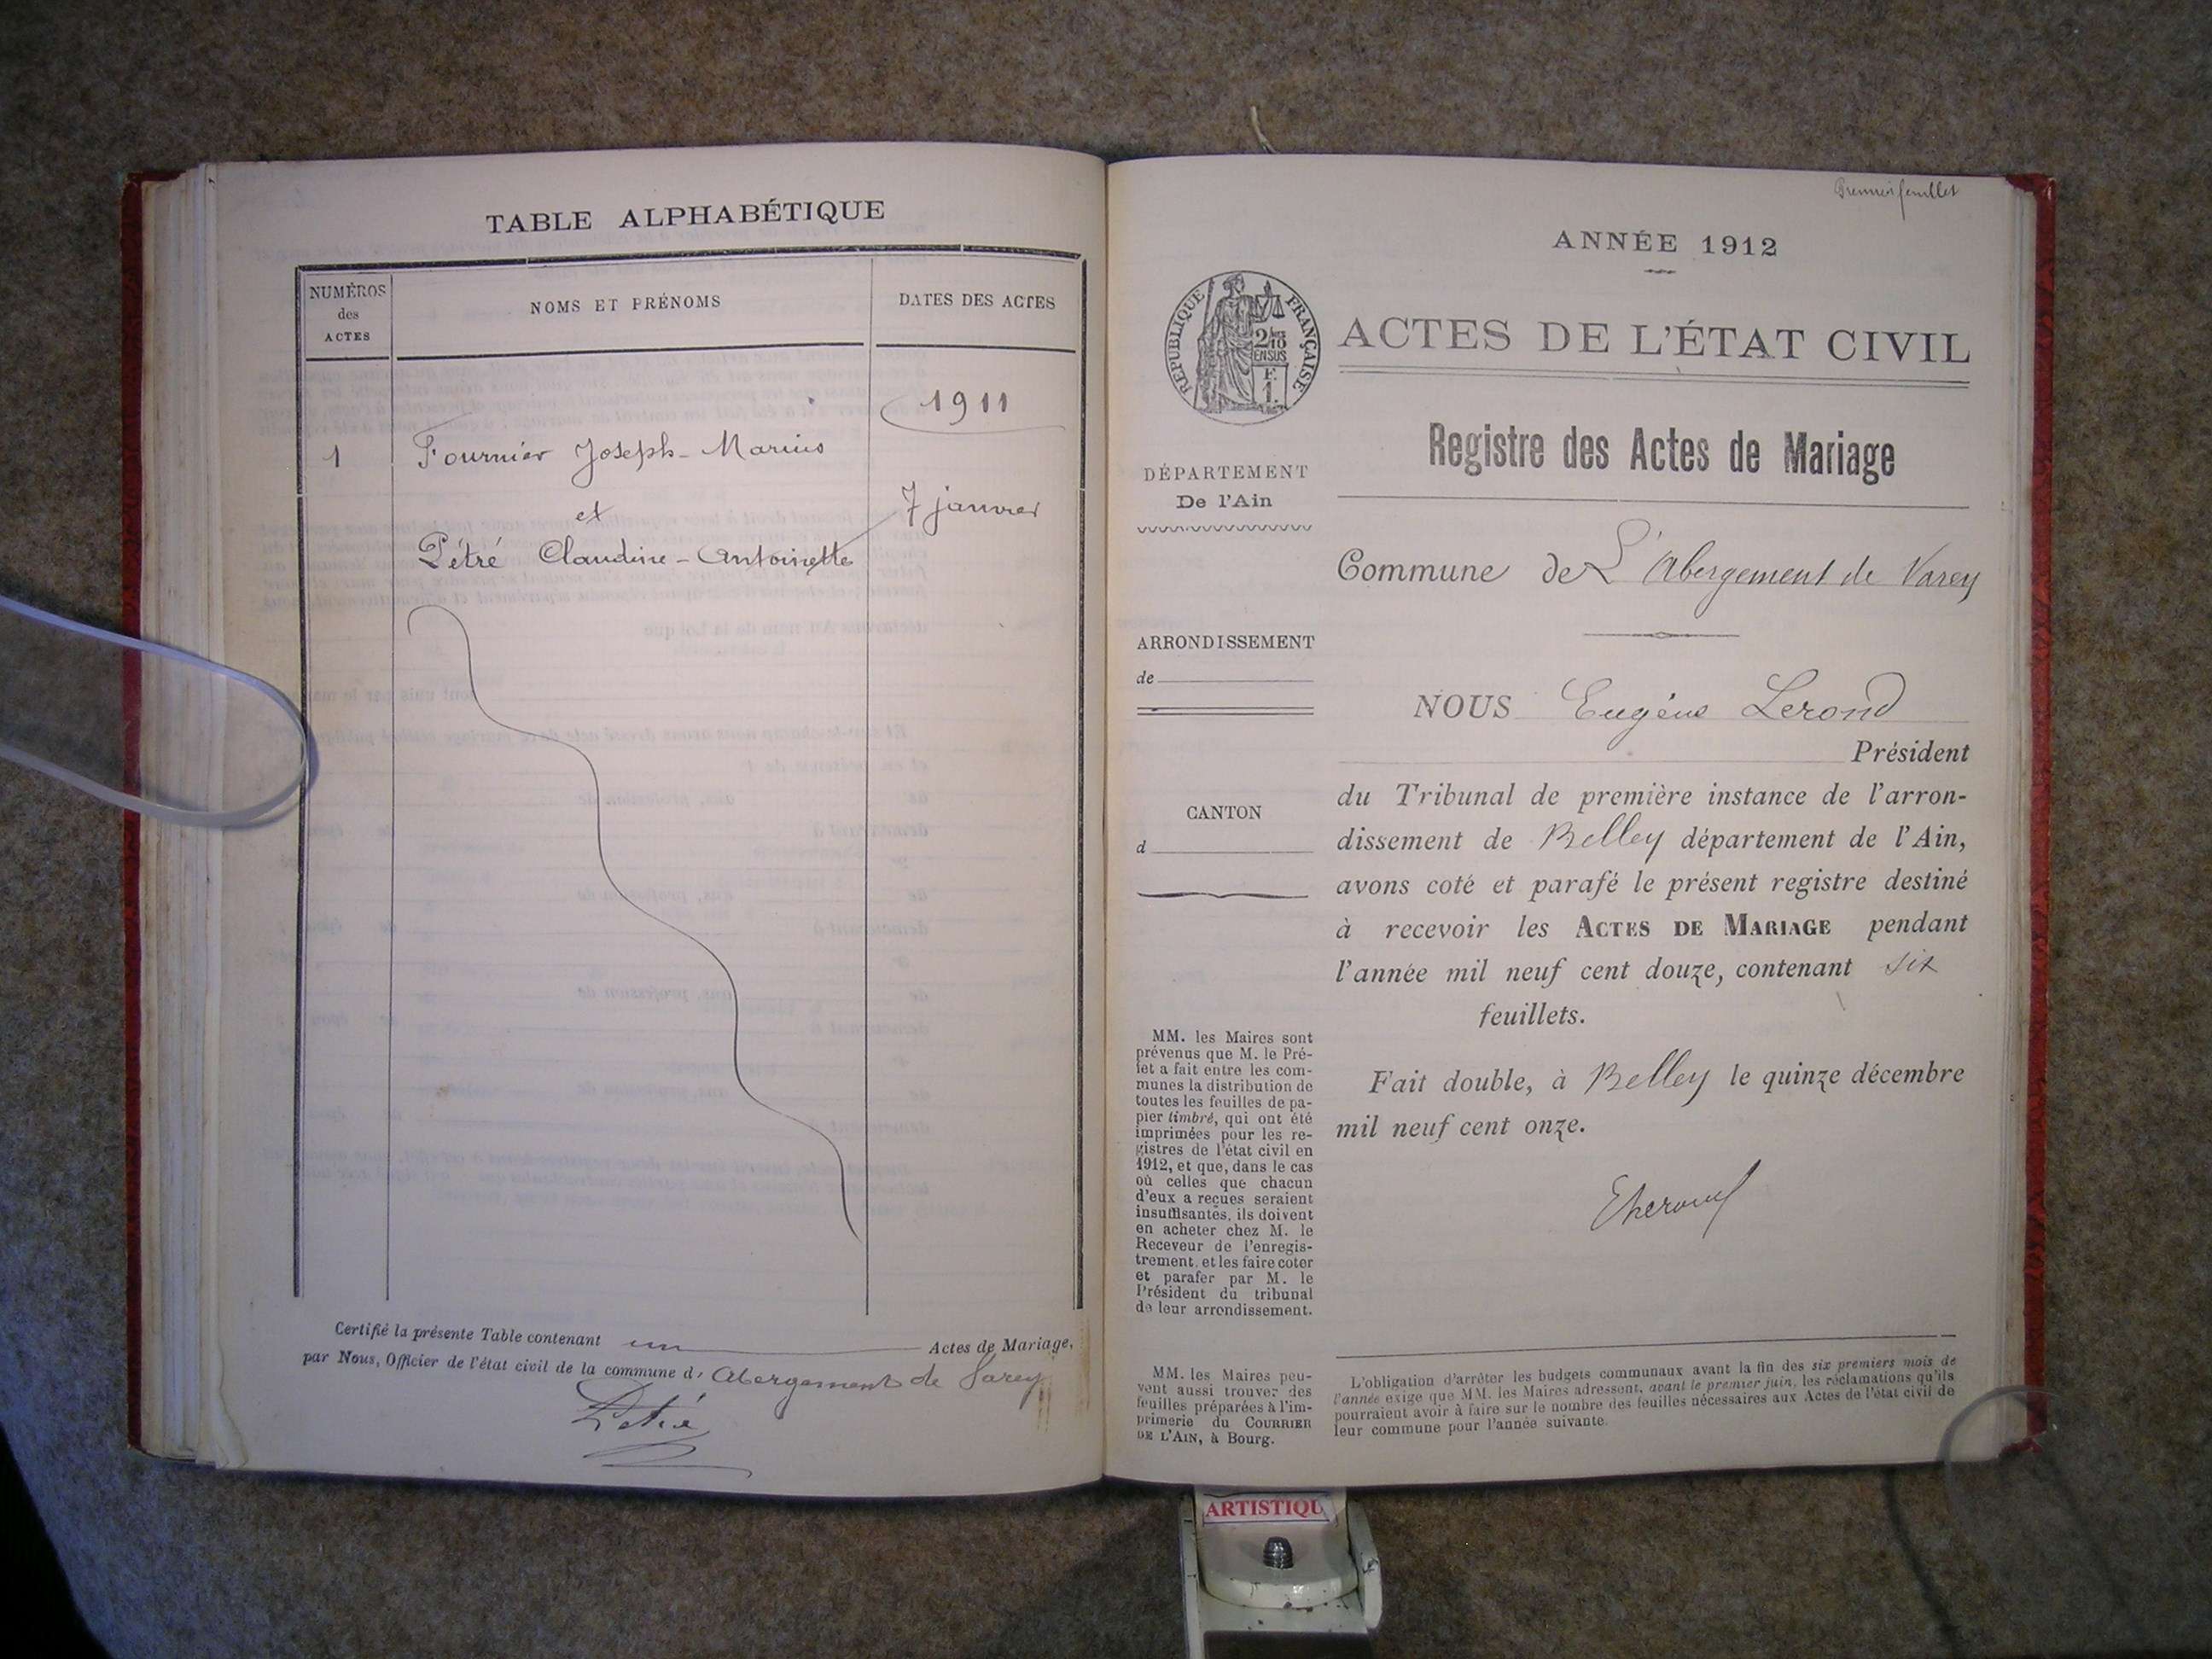 TABLE ALPHABÉTIQUE
NUMÉROS
des
ACTES
NOMS ET PRÉNOMS
DATES DES ACTES
1911
1
Fournier Joseph-Marius
et
7 janvier
Pétré Claudine-Antoinette
Certifié la présente Table contenant un Actes de Mariage,
par Nous, Officier de l'état civil de la commune d' Abergement de Varey
Pétré
Premier feuillet
ANNÉE 1912
RÉPUBLIQUE FRANÇAISE
ACTES DE L'ÉTAT CIVIL
Registre des Actes de Mariage
DÉPARTEMENT
De l'Ain
Commune de L'Abergement de Varey
ARRONDISSEMENT
de
NOUS Eugène Lerond
Président
du Tribunal de première instance de l'arron-
dissement de Belley département de l'Ain,
avons coté et parafé le présent registre destiné
à recevoir les ACTES DE MARIAGE pendant
l'année mil neuf cent douze, contenant six
feuillets.
Fait double, à Belley le quinze décembre
mil neuf cent onze.
CANTON
d
MM. les Maires sont
prévenus que M. le Pré-
fet a fait entre les com-
munes la distribution de
toutes les feuilles de pa-
pier timbré, qui ont été
imprimées pour les re-
gistres de l'état civil en
1912, et que, dans le cas
où celles que chacun
d'eux a reçues seraient
insuffisantes, ils doivent
en acheter chez M. le
Receveur de l'enregis-
trement, et les faire coter
et parafer par M. le
Président du tribunal
de leur arrondissement.
MM. les Maires peu-
vent aussi trouver des
feuilles préparées à l'im-
primerie du COURRIER
DE L'AIN, à Bourg.
L'obligation d'arrêter les budgets communaux avant la fin des six premiers mois de
l'année exige que MM. les Maires adressent, avant le premier juin, les réclamations qu'ils
pourraient avoir à faire sur le nombre des feuilles nécessaires aux Actes de l'état civil de
leur commune pour l'année suivante.
ARTISTIQU